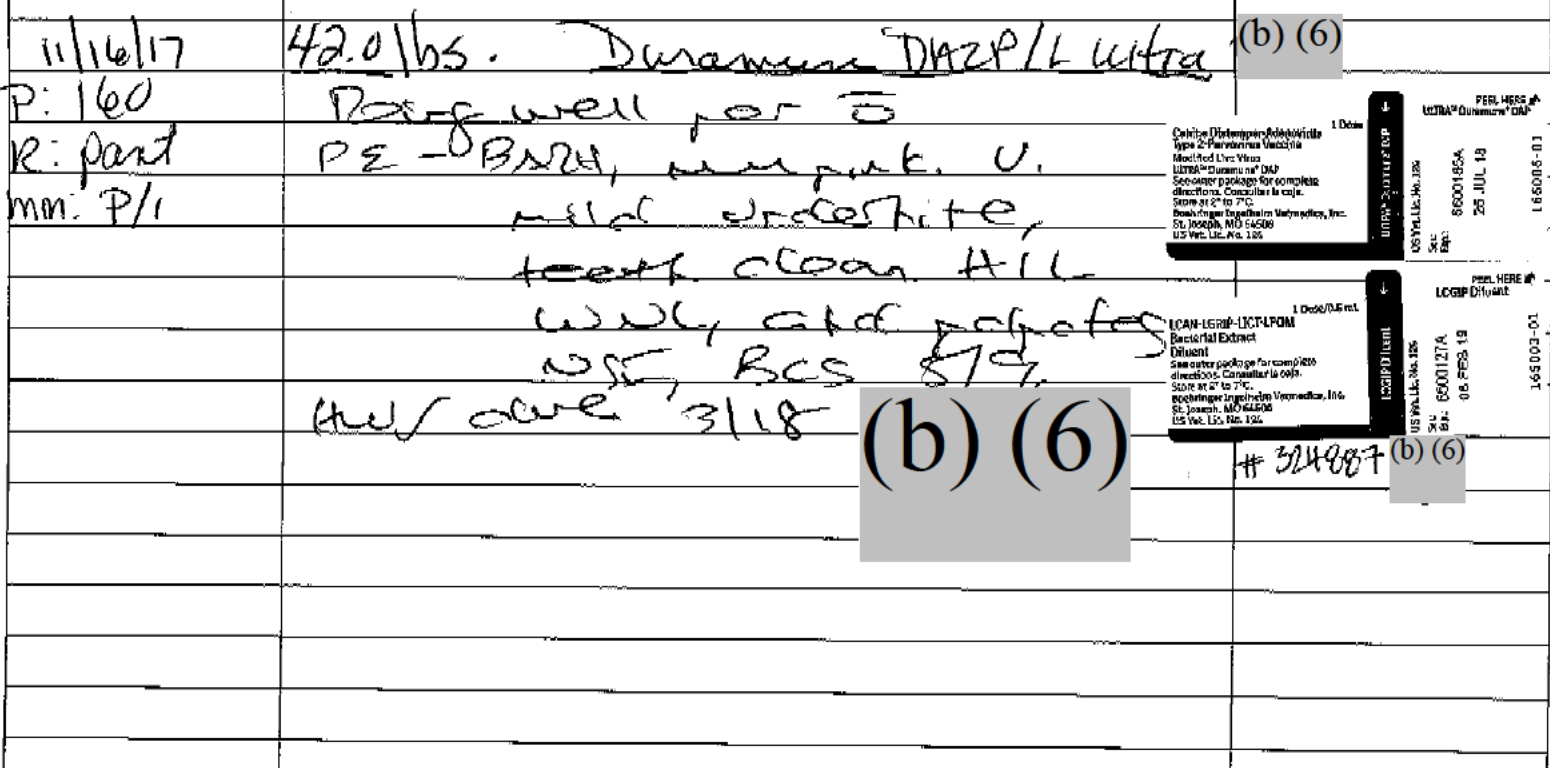 11/16/17 42.0 lbs. Duramune DA2P/L Ultra (b) (6)
P: 160 Doing well per O
R: pant PE - BARH, mm pink. U.
mm: P/1 mild underbite,
teeth clean H/L
WNL, abd palpates
NSF, BCS 8/9,
HW due 3/18
(b) (6)
# 324887 (b) (6)
1 Dose
Canine Distemper-Adenovirus
Type 2-Parvovirus Vaccine
Modified Live Virus
ULTRA™ Duramune® DAP
See outer package for complete
directions. Consultar la caja.
Store at 2° to 7°C.
Boehringer Ingelheim Vetmedica, Inc.
St. Joseph, MO 64506
US Vet. Lic. No. 124
PEEL HERE
ULTRA™ Duramune® DAP
US Vet. Lic. No. 124
Ser:
Exp:
26 JUL 18
1 Dose/0.5 mL
LCAN-LGRIP-LICT-LPOM
Bacterial Extract
Diluent
See outer package for complete
directions. Consultar la caja.
Store at 2° to 7°C.
Boehringer Ingelheim Vetmedica, Inc.
St. Joseph, MO 64506
US Vet. Lic. No. 124
LCGIP Diluent
PEEL HERE
LCGIP Diluent
US Vet. Lic. No. 124
Ser:
Exp:
06 FEB 19
165003-01